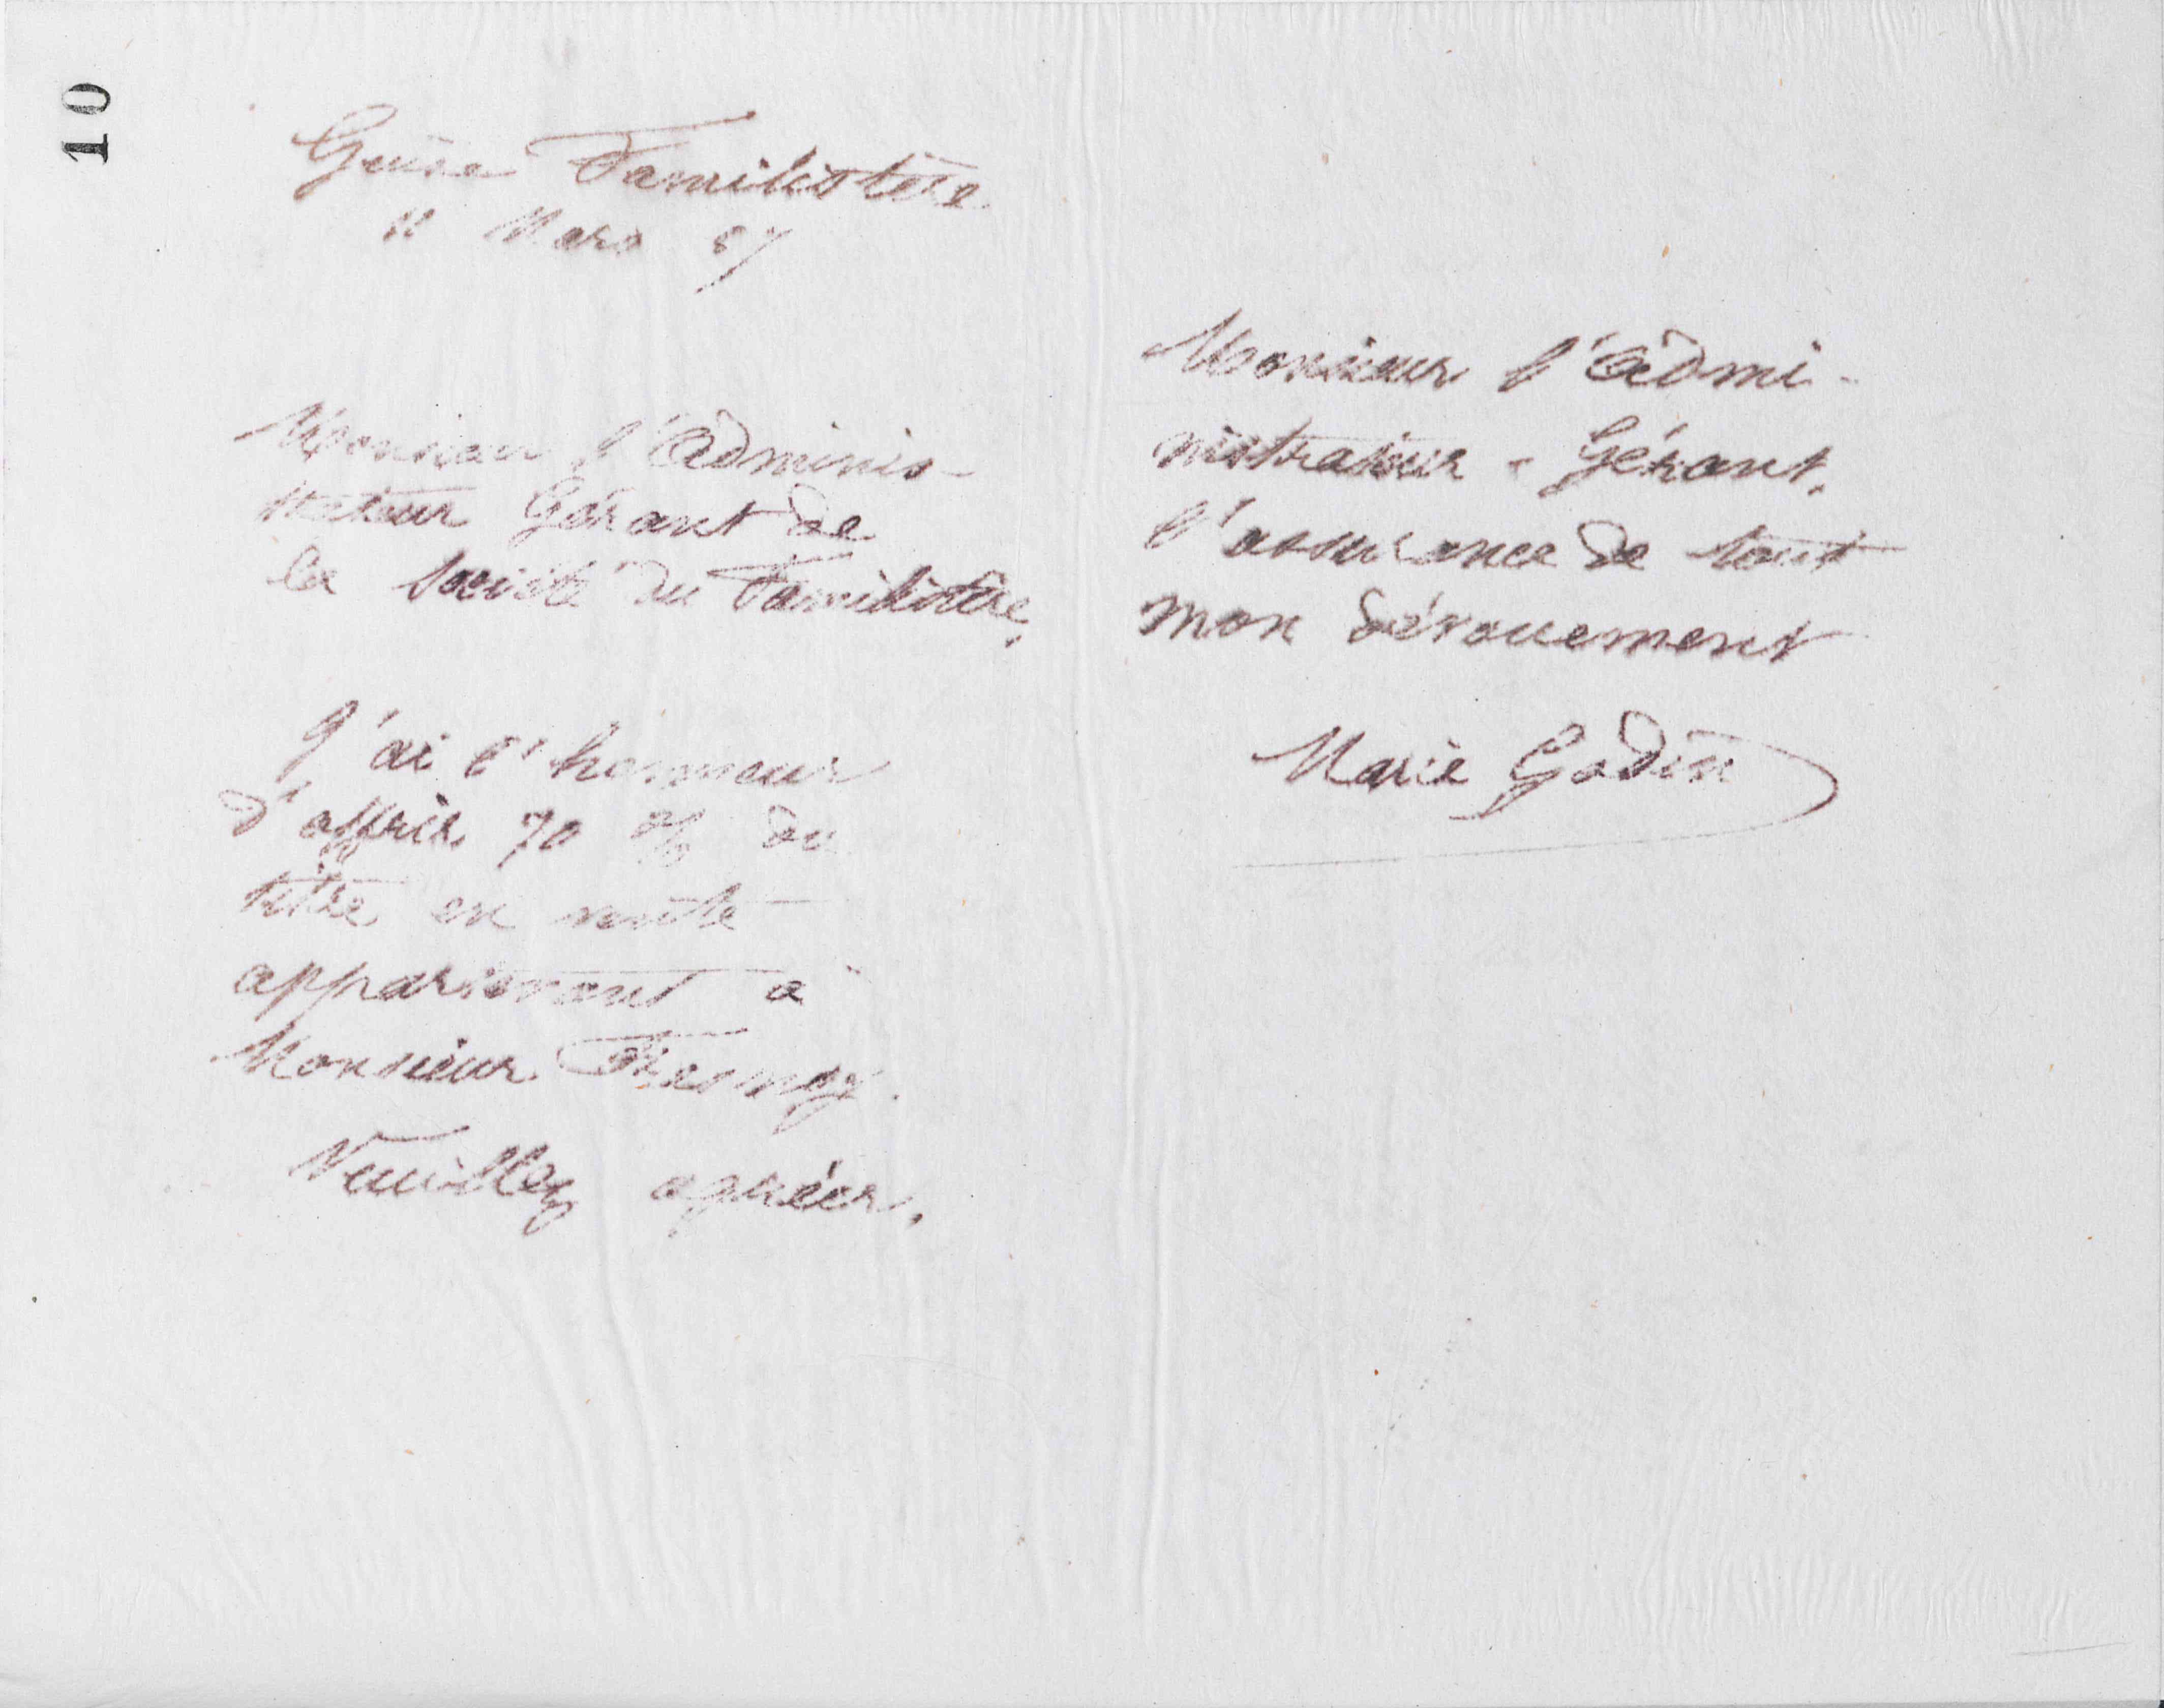 10
Guise Familistère
11 Mars 87
Monsieur l'Adminis-
trateur Gérant de
la Société du Familistère,
J'ai l'honneur
d'offrir 70 % du
titre en vente
appartenant à
Monsieur
Veuillez agréer,
Monsieur l'Admi-
nistrateur-Gérant,
l'assurance de tout
mon dévouement
Marie Godin